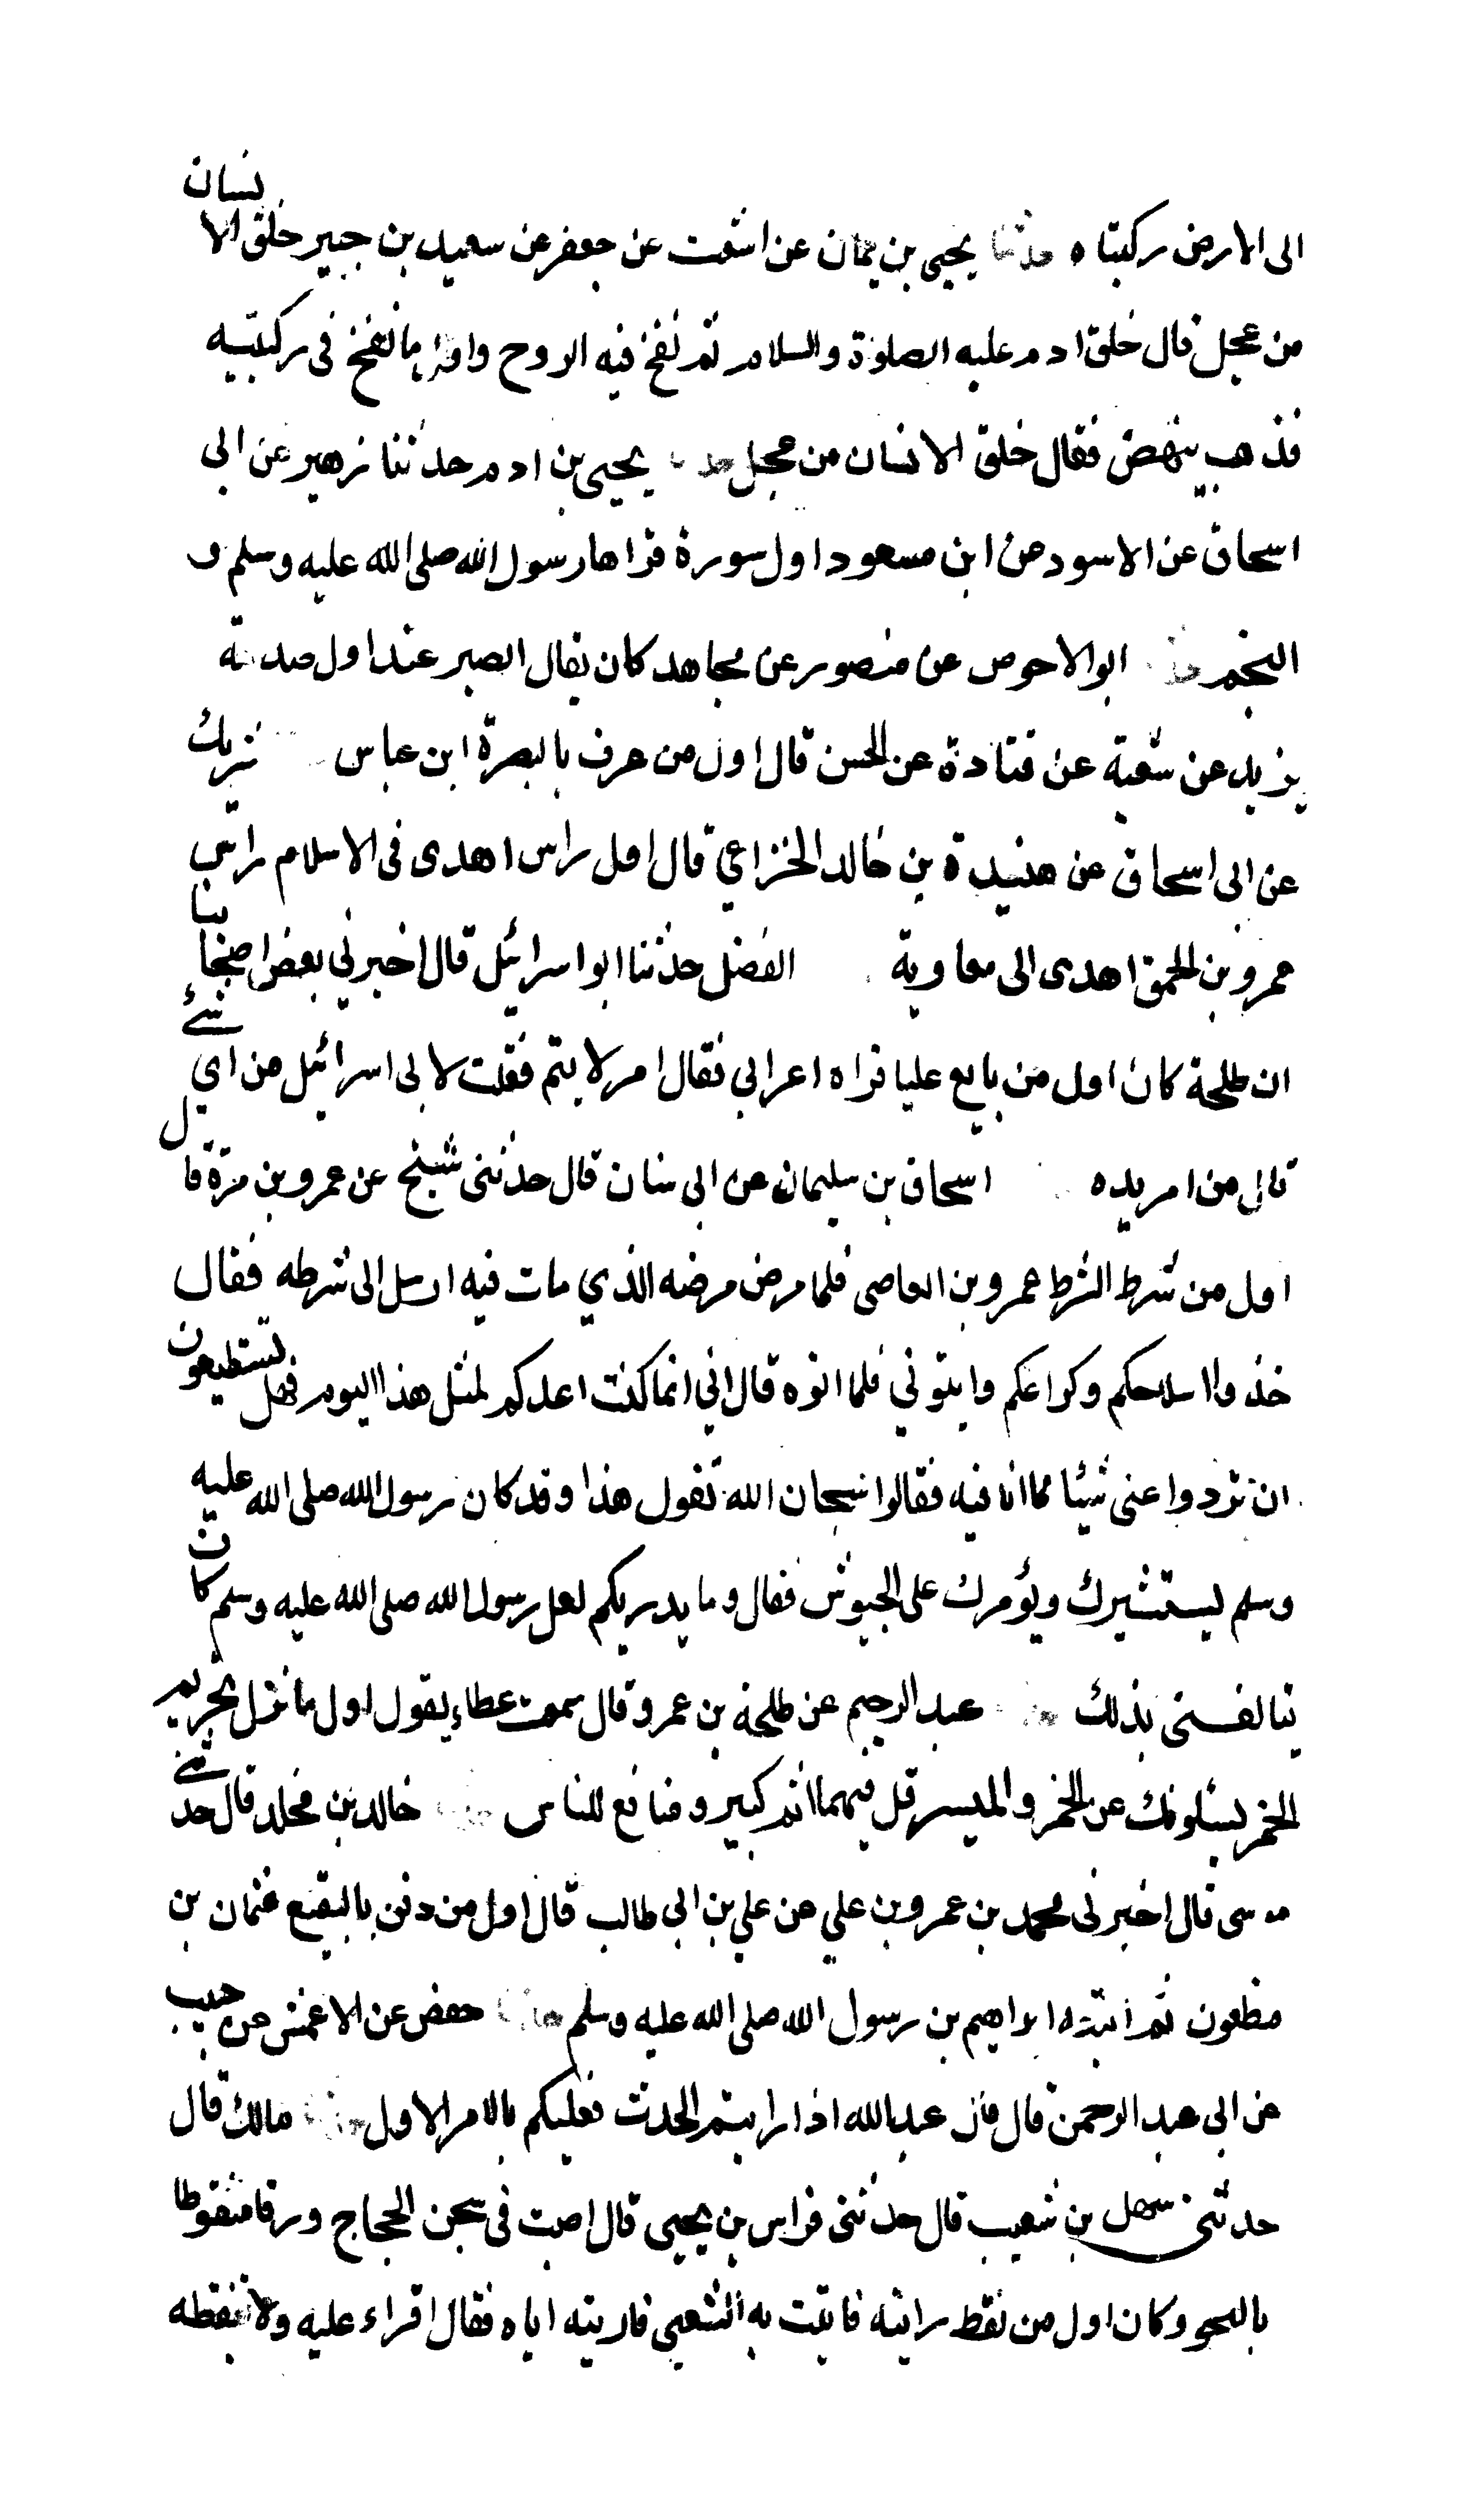 الى الارض ركبتاه حدثنا يحيى بن يمان عن اشعث عن جعفر عن سعيد بن جبير خلق الانسان
من عجل قال خلق ادم عليه الصلوة والسلام ثم نفخ فيه الروح واول ما نفخ فى ركبتيه
فذهب ينهض فقال خلق الانسان من عجل حدثنا يحيى بن ادم حدثنا زهير عن ابى
اسحاق عن الاسود عن ابن مسعود اول سورة قراها رسول الله صلى الله عليه وسلم و
النجم حدثنا ابو الاحوص عن منصور عن مجاهد كان يقال الصبر عند اول صدمة
يزيد عن شعبة عن قتادة عن الحسن قال اول من عرف بالبصرة ابن عباس شريك
عن ابى اسحاق عن هنيدة بن خالد الخزاعي قال اول راس اهدى فى الاسلام راس
عمرو بن الحمق اهدى الى معاوية الفضل حدثنا ابو اسرائيل قال اخبرني بعض اصحابنا
ان طلحة كان اول من بايع عليا فراه اعرابي فقال امر لا يتم فقلت لابى اسرائيل من اي شئ
قال من امر يده اسحاق بن سليمان عن ابى سنان قال حدثنى شيخ عن عمرو بن مرة قال
اول من شرط الشرط عمرو بن العاصى فلما مرض مرضه الذي مات فيه ارسل الى شرطه فقال
خذوا اسلحكم وكراعكم وايتوني فلما اتوه قال اني انما كنت اعدكم لمثل هذا اليوم فهل تستطيعون
ان تردوا عنى شيئا مما انا فيه فقالوا سبحان الله تقول هذا وقد كان رسول الله صلى الله عليه
وسلم يستشيرك ويؤمرك على الجيوش فقال وما يدريكم لعل رسول الله صلى الله عليه وسلم كان
يتالفنى بذلك حدثنا عبد الرحيم عن طلحة بن عمرو قال سمعت عطاء يقول اول ما نزل تحريم
الخمر يسئلونك عن الخمر والميسر قل فيهما اثم كبير ومنافع للناس خالد بن مخلد قال حدثنى
موسى قال اخبرنى محمد بن عمرو بن علي عن علي بن ابى طالب قال اول من دفن بالبقيع عثمان بن
مظعون ثم اتبعه ابراهيم بن رسول الله صلى الله عليه وسلم حدثنا حفص عن الاعمش عن حبيب
عن ابى عبد الرحمن قال قال عبد الله اذا رايتم الحدث فعليكم بالامر الاول حدثنا مالك قال
حدثنى سهل بن شعيب قال حدثنى فراس بن يحيى قال اصبت فى سجن الحجاج ورقا منقوطا
بالنحو وكان اول من نقط رايته فاتيت به الشعبي فاريته اياه فقال اقراء عليه ولا تنقطه